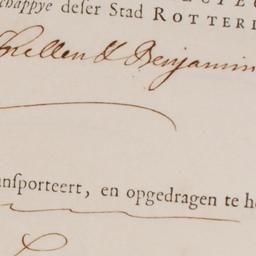 schappye deser Stad ROTTER
& Benjamin
ansporteert, en opgedragen te h